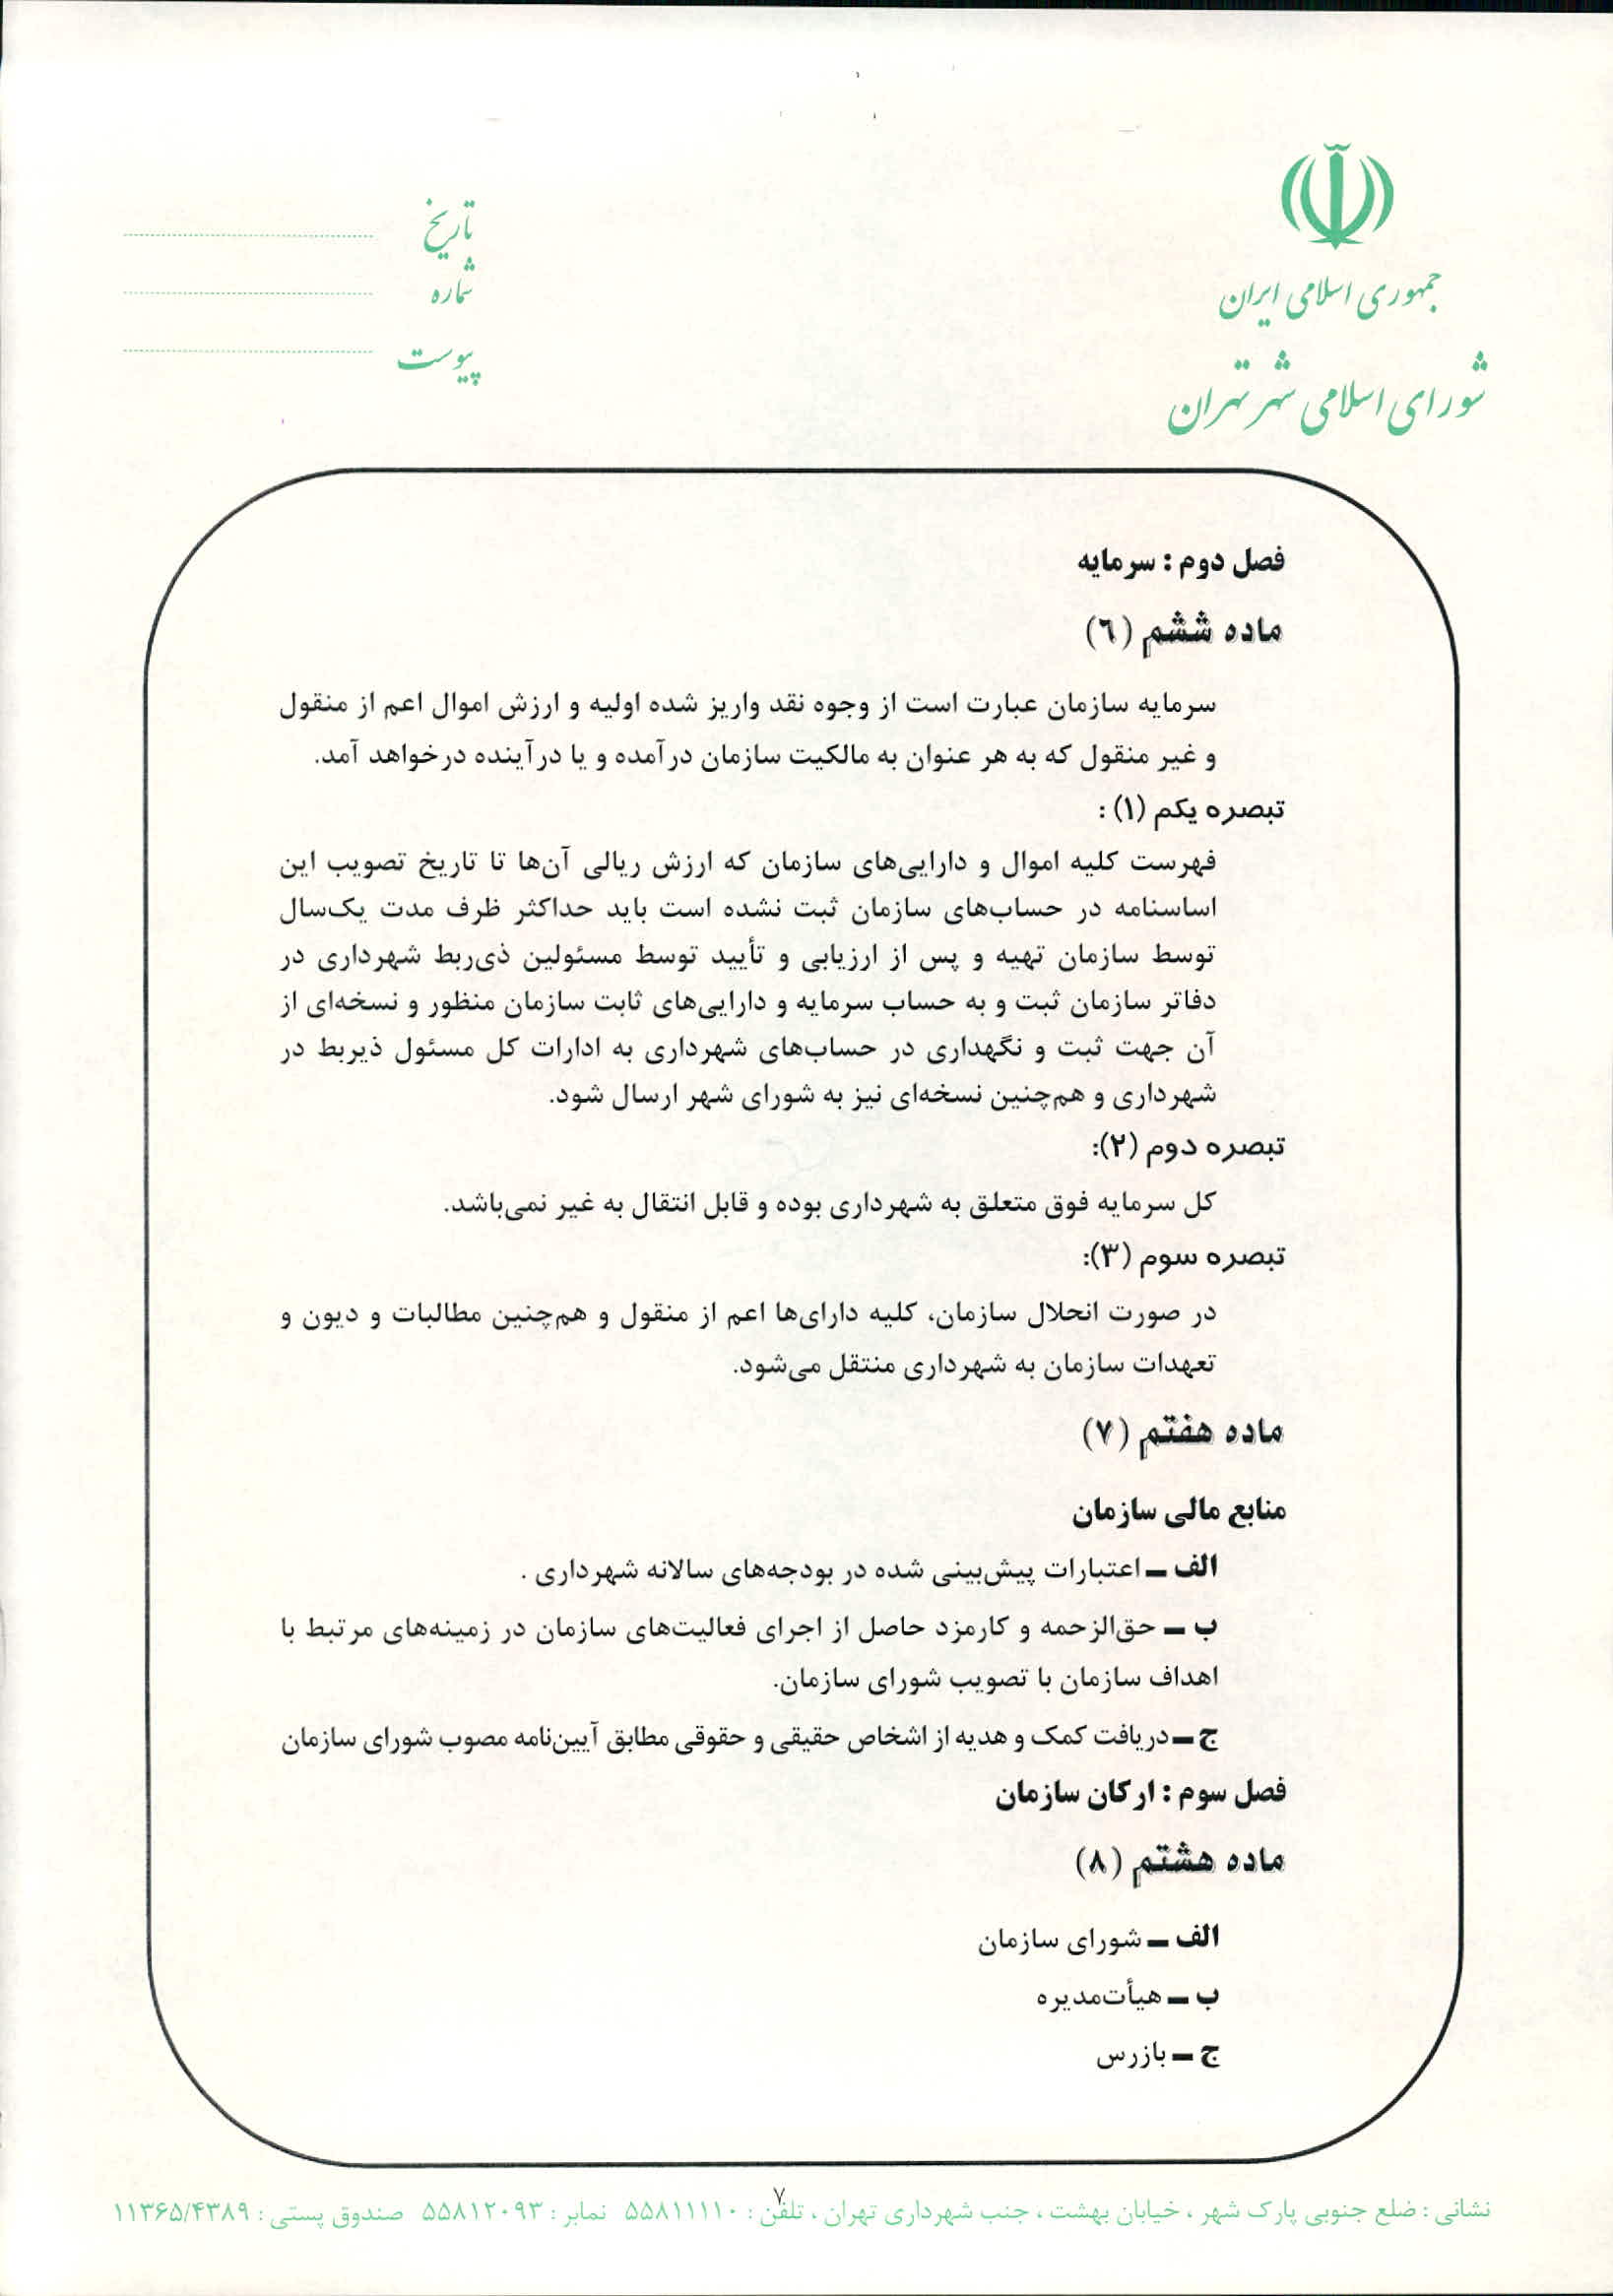 جمهوری اسلامی ایران
شورای اسلامی شهر تهران
تاریخ
شماره
پیوست
فصل دوم : سرمایه
ماده ششم (٦)
سرمایه سازمان عبارت است از وجوه نقد واریز شده اولیه و ارزش اموال اعم از منقول
و غیر منقول که به هر عنوان به مالکیت سازمان درآمده و یا درآینده درخواهد آمد.
تبصره یکم (۱) :
فهرست کلیه اموال و دارایی‌های سازمان که ارزش ریالی آن‌ها تا تاریخ تصویب این
اساسنامه در حساب‌های سازمان ثبت نشده است باید حداکثر ظرف مدت یک‌سال
توسط سازمان تهیه و پس از ارزیابی و تأیید توسط مسئولین ذی‌ربط شهرداری در
دفاتر سازمان ثبت و به حساب سرمایه و دارایی‌های ثابت سازمان منظور و نسخه‌ای از
آن جهت ثبت و نگهداری در حساب‌های شهرداری به ادارات کل مسئول ذیربط در
شهرداری و هم‌چنین نسخه‌ای نیز به شورای شهر ارسال شود.
تبصره دوم (۲):
کل سرمایه فوق متعلق به شهرداری بوده و قابل انتقال به غیر نمی‌باشد.
تبصره سوم (۳):
در صورت انحلال سازمان، کلیه دارای‌ها اعم از منقول و هم‌چنین مطالبات و دیون و
تعهدات سازمان به شهرداری منتقل می‌شود.
ماده هفتم (۷)
منابع مالی سازمان
الف – اعتبارات پیش‌بینی شده در بودجه‌های سالانه شهرداری .
ب – حق‌الزحمه و کارمزد حاصل از اجرای فعالیت‌های سازمان در زمینه‌های مرتبط با
اهداف سازمان با تصویب شورای سازمان.
ج – دریافت کمک و هدیه از اشخاص حقیقی و حقوقی مطابق آیین‌نامه مصوب شورای سازمان
فصل سوم : ارکان سازمان
ماده هشتم (۸)
الف – شورای سازمان
ب – هیأت‌مدیره
ج – بازرس
۷
نشانی : ضلع جنوبی پارک شهر ، خیابان بهشت ، جنب شهرداری تهران ، تلفن : ۵۵۸۱۱۱۱۰ نمابر : ۵۵۸۱۲۰۹۳ صندوق پستی : ۱۱۳۶۵/۴۳۸۹